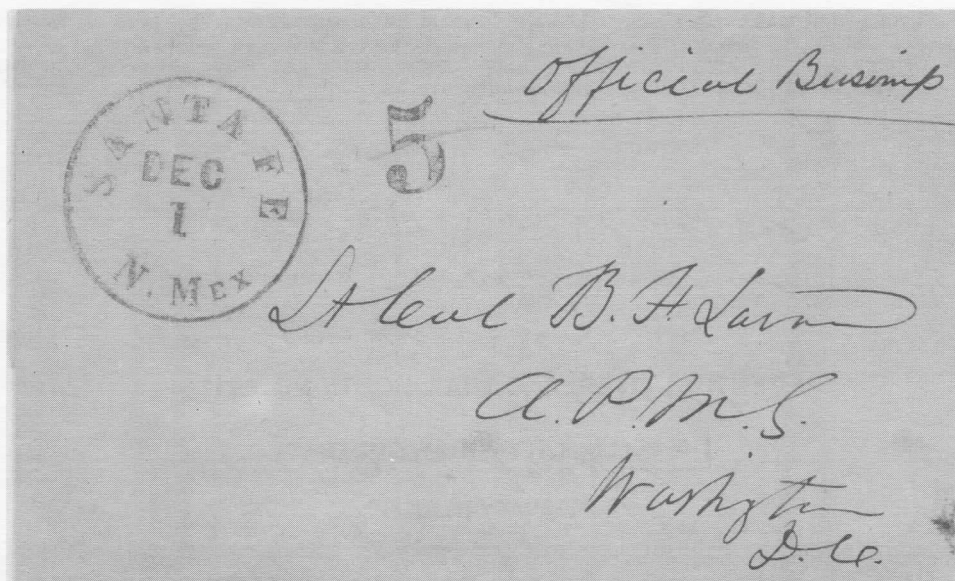 Official Business
SANTA FE
DEC
1
N. MEX
5
Lt Col B. F. Larned
A. P. M. G.
Washington
D. C.